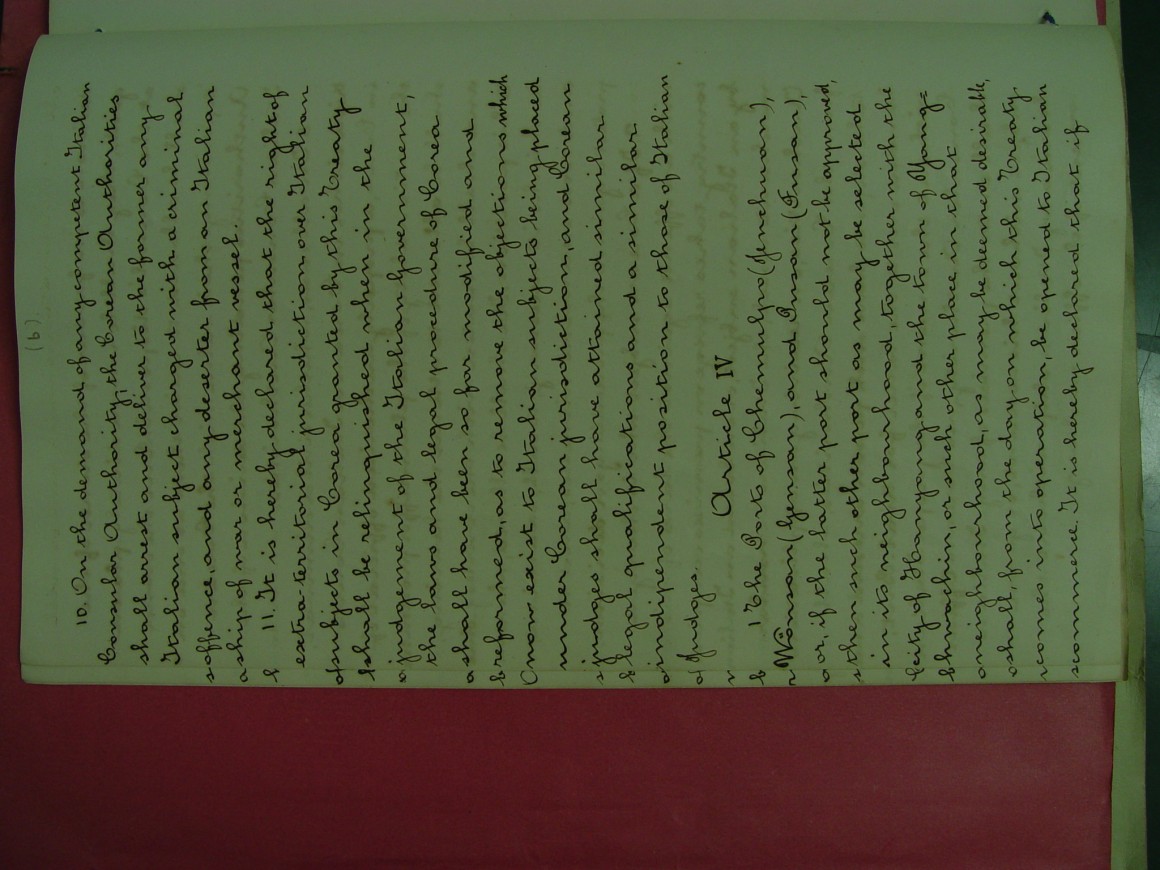 (6)
10. On the demand of any competent Italian
Consular Authority, the Corean Authorities
shall arrest and deliver to the former any
Italian subject charged with a criminal
offence, and any deserter from an Italian
ship of war or merchant vessel.
11. It is hereby declared that the right of
extra-territorial jurisdiction over Italian
subjects in Corea granted by this Treaty
shall be relinquished when in the
judgement of the Italian Government,
the laws and legal procedure of Corea
shall have been so far modified and
reformed, as to remove the objections which
now exist to Italian subjects being placed
under Corean jurisdiction, and Corean
judges shall have attained similar
legal qualifications and a similar
indipendent position to those of Italian
Judges.
Article IV
1 The Ports of Chemulpo (Jenchuan),
Wönsan (Gensan), and Pusan (Fusan),
or, if the latter port should not be approved,
then such other port as may be selected
in its neighbourhood, together with the
City of Hanyang and the town of Yang=
hwachin, or such other place in that
neighbourhood, as may be deemed desirable,
shall, from the day on which this Treaty
comes into operation, be opened to Italian
commerce. It is hereby declared that if